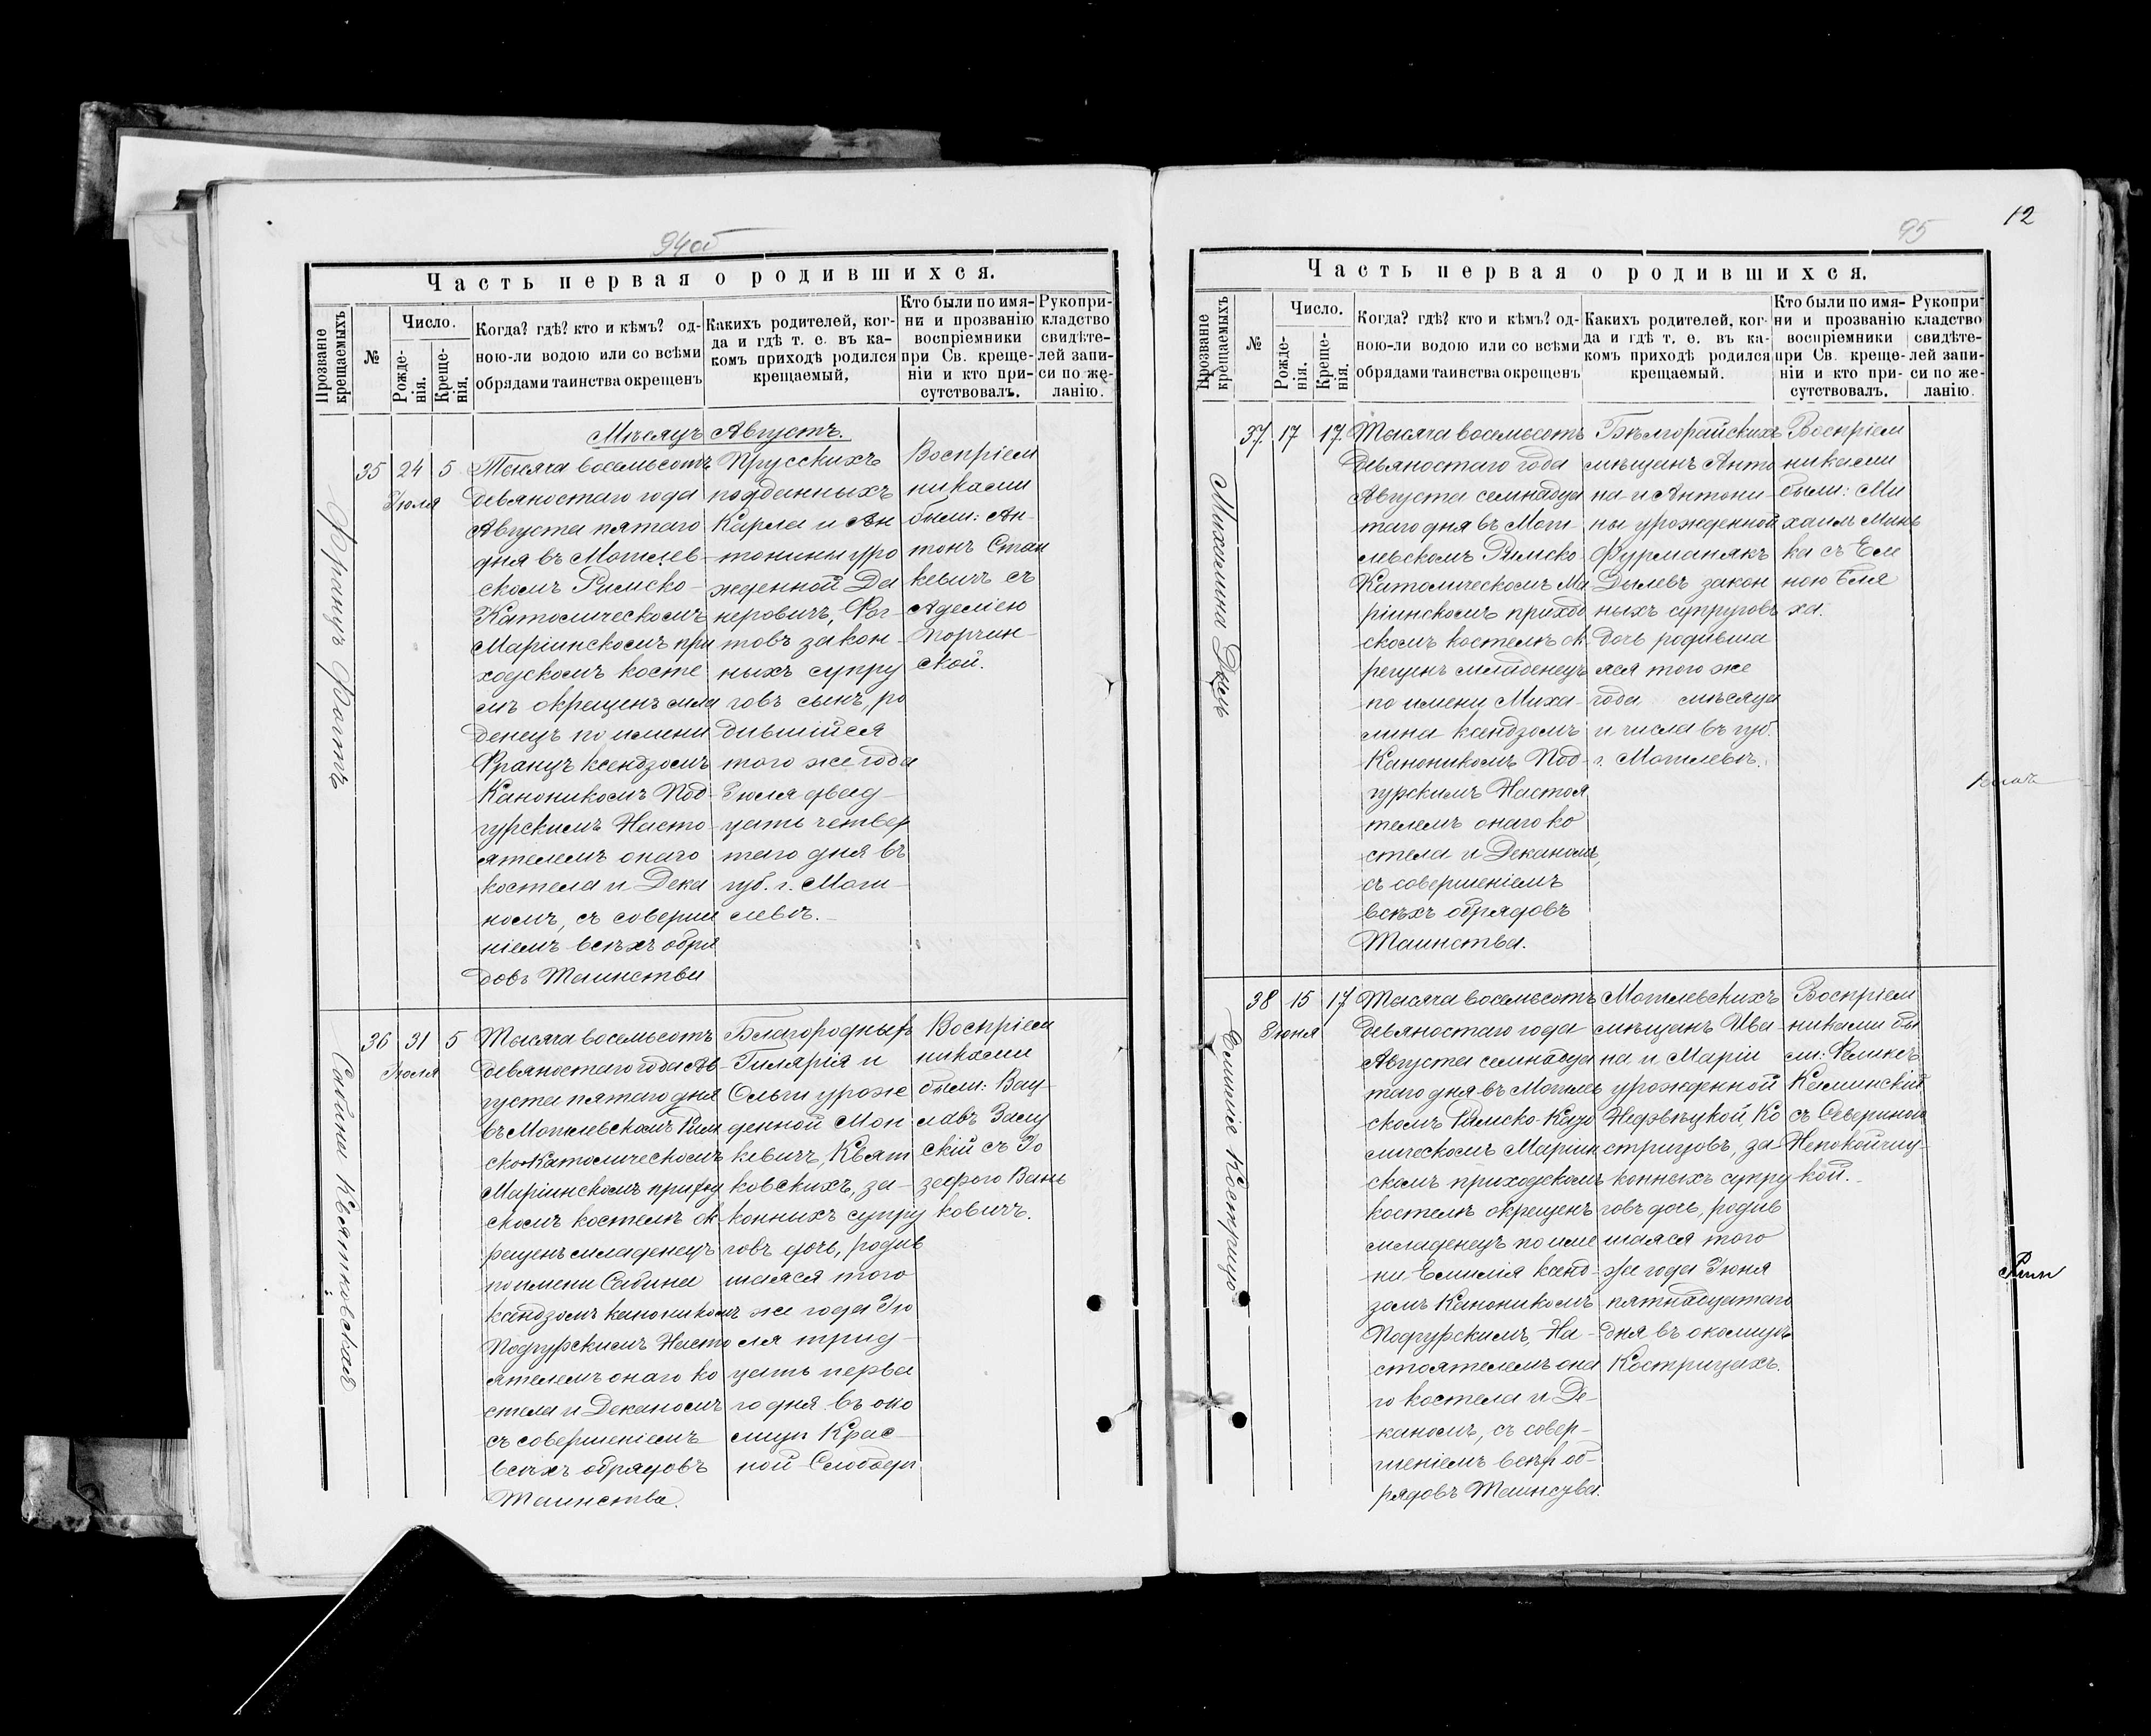 94об
Часть первая о родившихся.
Прозваніе крещаемыхъ
№
Число.
Рожде-
нія.
Креще-
нія.
Когда? гдѣ? кто и кѣмъ? од-
ною-ли водою или со всѣми
обрядами таинства окрещенъ
Какихъ родителей, ког-
да и гдѣ т. е. въ ка-
комъ приходѣ родился
крещаемый,
Кто были по имя-
ни и прозванію
воспріемники
при Св. креще-
ніи и кто при-
сутствовалъ.
Рукопри-
кладство
свидѣте-
лей запи-
си по же-
ланію.
Мѣсяцъ Августъ.
Францъ Фогтъ
35 24 5
Іюля
Тысяча восемьсотъ
девяностаго года
Августа пятаго
дня въ Могилев-
скомъ Римско-
Католическомъ
Маріинскомъ при
ходскомъ косте
лѣ окрещенъ мла
денецъ по имени
Францъ ксендзомъ
Каноникомъ Под-
гурскимъ Насто-
ятелемъ онаго
костела и Дека
номъ, съ соверше
ніемъ всѣхъ обря
довъ Таинства
Прусскихъ
подданныхъ
Карла и Ан
тонины уро
жденной Да
неровичъ, Фог-
товъ закон-
ныхъ супру
говъ сынъ, ро
дившійся
того же года
Іюля двад-
цать четвер
таго дня въ
губ. г. Моги-
левѣ.
Воспріем
никами
были: Ан-
тонъ Стан
кевичъ съ
Аделіею
Порчин-
ской.
Сабина Квятковская
36 31 5
Іюля
Тысяча восемьсотъ
девяностаго года Ав-
густа пятаго дня
въ Могилевскомъ Рим
ско-Католическомъ
Маріинскомъ приход
скомъ костелѣ ок-
рещенъ младенецъ
по имени Сабина
ксендзомъ каноникомъ
Подгурскимъ Насто
ятелемъ онаго ко
стела и Деканомъ
съ совершеніемъ
всѣхъ обрядовъ
Таинства.
Благородныхъ
Гилярія и
Ольги урож
денной Мон
кевичъ, Квят
ковскихъ, за-
конныхъ супру
говъ дочь, родив
шаяся того
же года Ію
ля трид-
цать перва
го дня въ око
лицѣ Крас-
ной Слободѣ
Воспріем
никами
были: Вац-
лавъ Залу
скій съ Іо
зефою Вань
ковичъ.
12
95
Часть первая о родившихся.
Прозваніе крещаемыхъ
№
Число.
Рожде-
нія.
Креще-
нія.
Когда? гдѣ? кто и кѣмъ? од-
ною-ли водою или со всѣми
обрядами таинства окрещенъ
Какихъ родителей, ког-
да и гдѣ т. е. въ ка-
комъ приходѣ родился
крещаемый.
Кто были по имя-
ни и прозванію
воспріемники
при Св. креще-
ніи и кто при-
сутствовалъ.
Рукопри-
кладство
свидѣте-
лей запи-
си по же-
ланію.
Михалина
37 17 17
Тысяча восемьсотъ
девяностаго года
Августа семнадца
таго дня въ Моги-
левскомъ Римско
Католическомъ Ма
ріинскомъ приход
скомъ костелѣ ок-
рещенъ младенецъ
по имени Миха-
лина ксендзомъ
Каноникомъ Под-
гурскимъ Настоя
телемъ онаго ко
стела и Деканомъ,
съ совершеніемъ
всѣхъ обрядовъ
Таинства.
Бѣлгорайскихъ
мѣщанъ Анто
на и Антони-
ны урожденной
Фурманякъ
Дылевъ закон
ныхъ супруговъ
дочь родивша
яся того же
года мѣсяца
и числа въ губ.
г. Могилевѣ.
Воспріем
никами
были: Ми
хаилъ Минь
ка съ Еле
ною Бля
ха.
Емилія Кострицо
38 15 17
Іюня
Тысяча восемьсотъ
девяностаго года
Августа семнадца
таго дня въ Могилев
скомъ Римско-Като
лическомъ Маріин
скомъ приходскомъ
костелѣ окрещенъ
младенецъ по име
ни Емилія ксенд-
зомъ Каноникомъ
Подгурскимъ, На-
стоятелемъ она
го костела и Де-
каномъ, съ совер-
шеніемъ всѣхъ об-
рядовъ Таинства.
Могилевскихъ
мѣщанъ Ива-
на и Маріи
урожденной
Недзвѣцкой, Ко
стрицовъ, за-
конныхъ супру
говъ дочь, родив
шаяся того
же года Іюня
пятнадцатаго
дня въ околицѣ
Кострицахъ.
Воспріем
никами бы
ли: Феликсъ
Каминскій
съ Севериною
Непокойчиц-
кой.